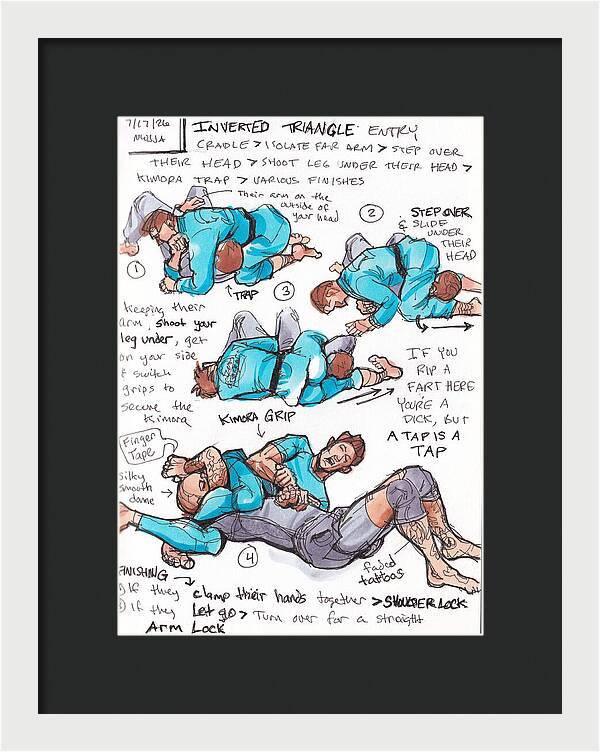 7/17/26
INVERTED TRIANGLE ENTRY
CRADLE > ISOLATE FAR ARM > STEP OVER
THEIR HEAD > SHOOT LEG UNDER THEIR HEAD >
KIMORA TRAP > VARIOUS FINISHES
Their arm on the
outside of
your head
1
TRAP
2
STEP OVER
& SLIDE
UNDER
THEIR
HEAD
3
keeping their
arm, shoot your
leg under, get
on your side
& switch
grips to
secure the
Kimora
KIMORA GRIP
IF YOU
RIP A
FART HERE
YOU'RE A
DICK, BUT
A TAP IS A
TAP
Finger
Tape
silky
smooth
dome
4
faded
tattoos
FINISHING
1) If they clamp their hands together > SHOULDER LOCK
2) If they Let go > Turn over for a straight
Arm Lock